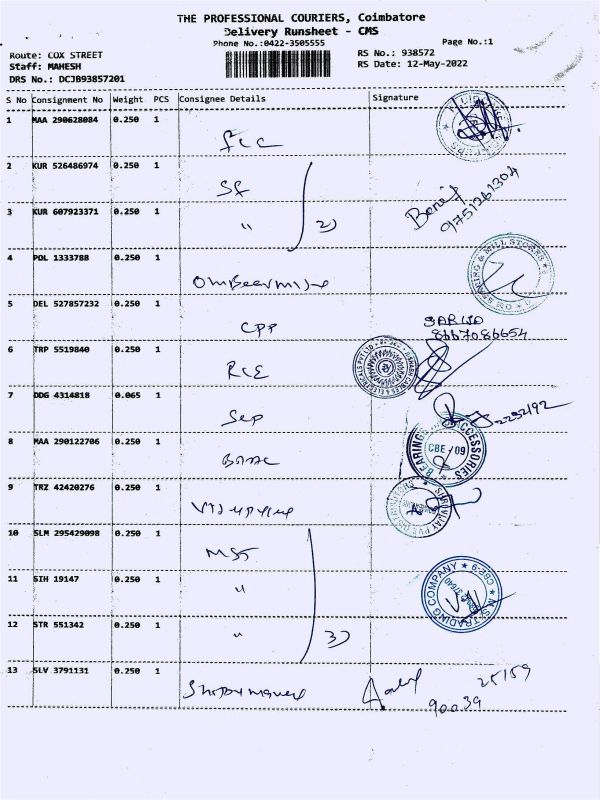 THE PROFESSIONAL COURIERS, Coimbatore
Delivery Runsheet - CMS
Phone No.:0422-3505555
Page No.:1
Route: COX STREET
RS No.: 938572
Staff: MAHESH
RS Date: 12-May-2022
DRS No.: DCJB93857201
S No Consignment No Weight PCS Consignee Details Signature
1 MAA 290628084 0.250 1
2 KUR 526486974 0.250 1 SF
3 KUR 607923371 0.250 1 " 2)
9751261304
4 POL 1333788 0.250 1
5 DEL 527857232 0.250 1 CPP
8667086654
6 TRP 5519840 0.250 1 RCE
7 DDG 4314818 0.065 1 Sep
8 MAA 290122706 0.250 1
BEARINGS ACCESSORIES
CBE-09
9 TRZ 42420276 0.250 1
10 SLM 295429098 0.250 1 MST
11 SIH 19147 0.250 1 "
TRADING COMPANY ★ CBE-9 ★
12 STR 551342 0.250 1 " 3)
13 SLV 3791131 0.250 1
25159
90039